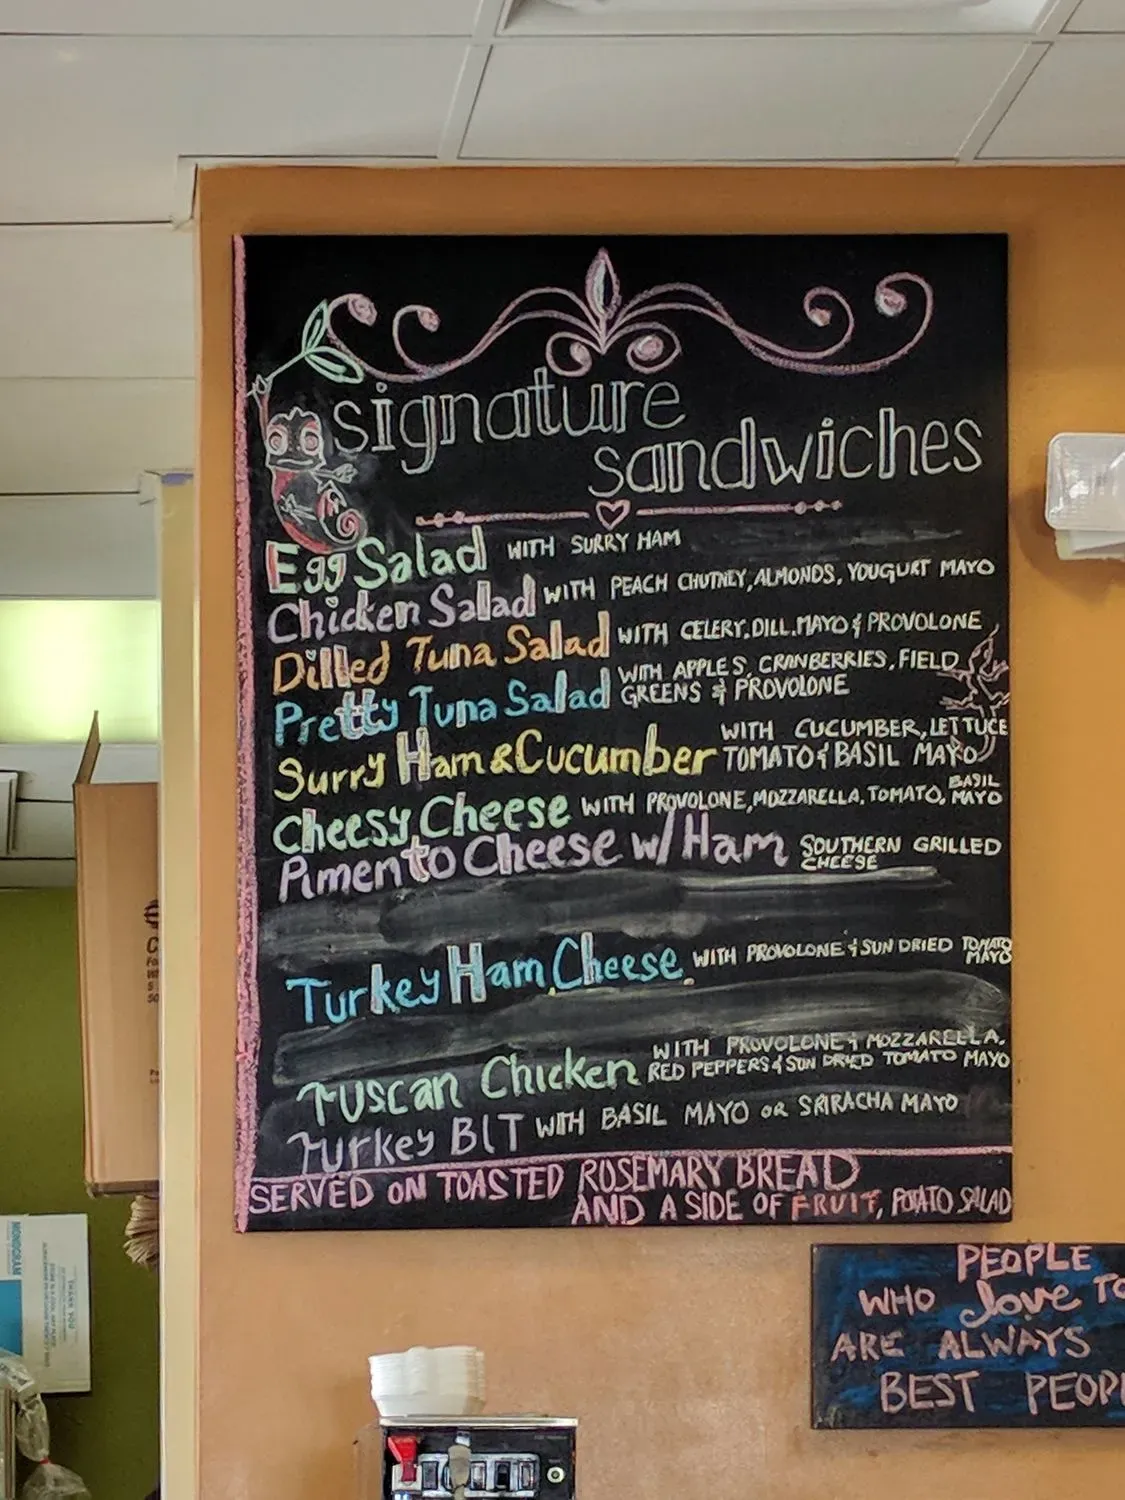 signature
sandwiches
Egg Salad WITH SURRY HAM
Chicken Salad WITH PEACH CHUTNEY, ALMONDS, YOUGURT MAYO
Dilled Tuna Salad WITH CELERY, DILL, MAYO & PROVOLONE
Pretty Tuna Salad WITH APPLES, CRANBERRIES, FIELD
GREENS & PROVOLONE
Surry Ham & Cucumber WITH CUCUMBER, LETTUCE
TOMATO & BASIL MAYO
Cheesy Cheese WITH PROVOLONE, MOZZARELLA, TOMATO, BASIL
MAYO
Pimento Cheese w/ Ham SOUTHERN GRILLED
CHEESE
Turkey Ham Cheese WITH PROVOLONE & SUN DRIED TOMATO
MAYO
Tuscan Chicken WITH PROVOLONE & MOZZARELLA,
RED PEPPERS & SUN DRIED TOMATO MAYO
Turkey BLT WITH BASIL MAYO OR SRIRACHA MAYO
SERVED ON TOASTED ROSEMARY BREAD
AND A SIDE OF FRUIT, POTATO SALAD
PEOPLE
WHO love TO
ARE ALWAYS
BEST PEOP
MONOGRAM
THANK YOU